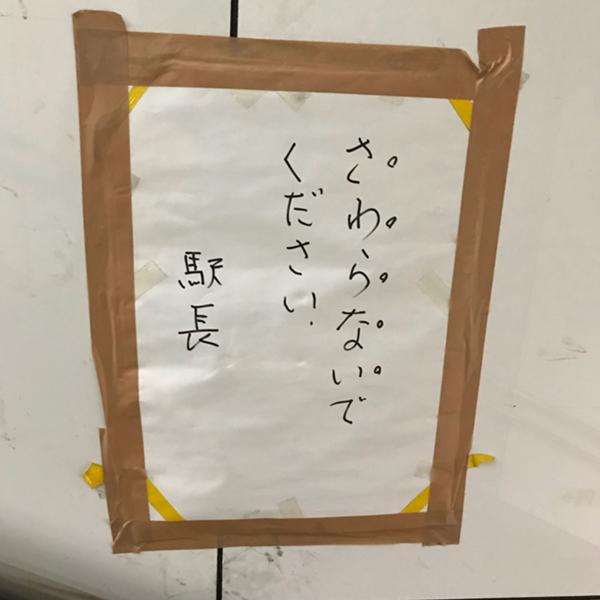 さわらないで
ください.
駅長